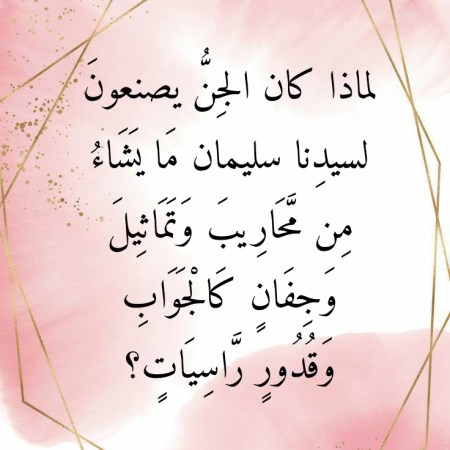 لماذا كان الجِنُّ يصنعونَ
لسيدِنا سليمان مَا يَشَاءُ
مِن مَّحَارِيبَ وَتَمَاثِيلَ
وَجِفَانٍ كَالْجَوَابِ
وَقُدُورٍ رَّاسِيَاتٍ؟